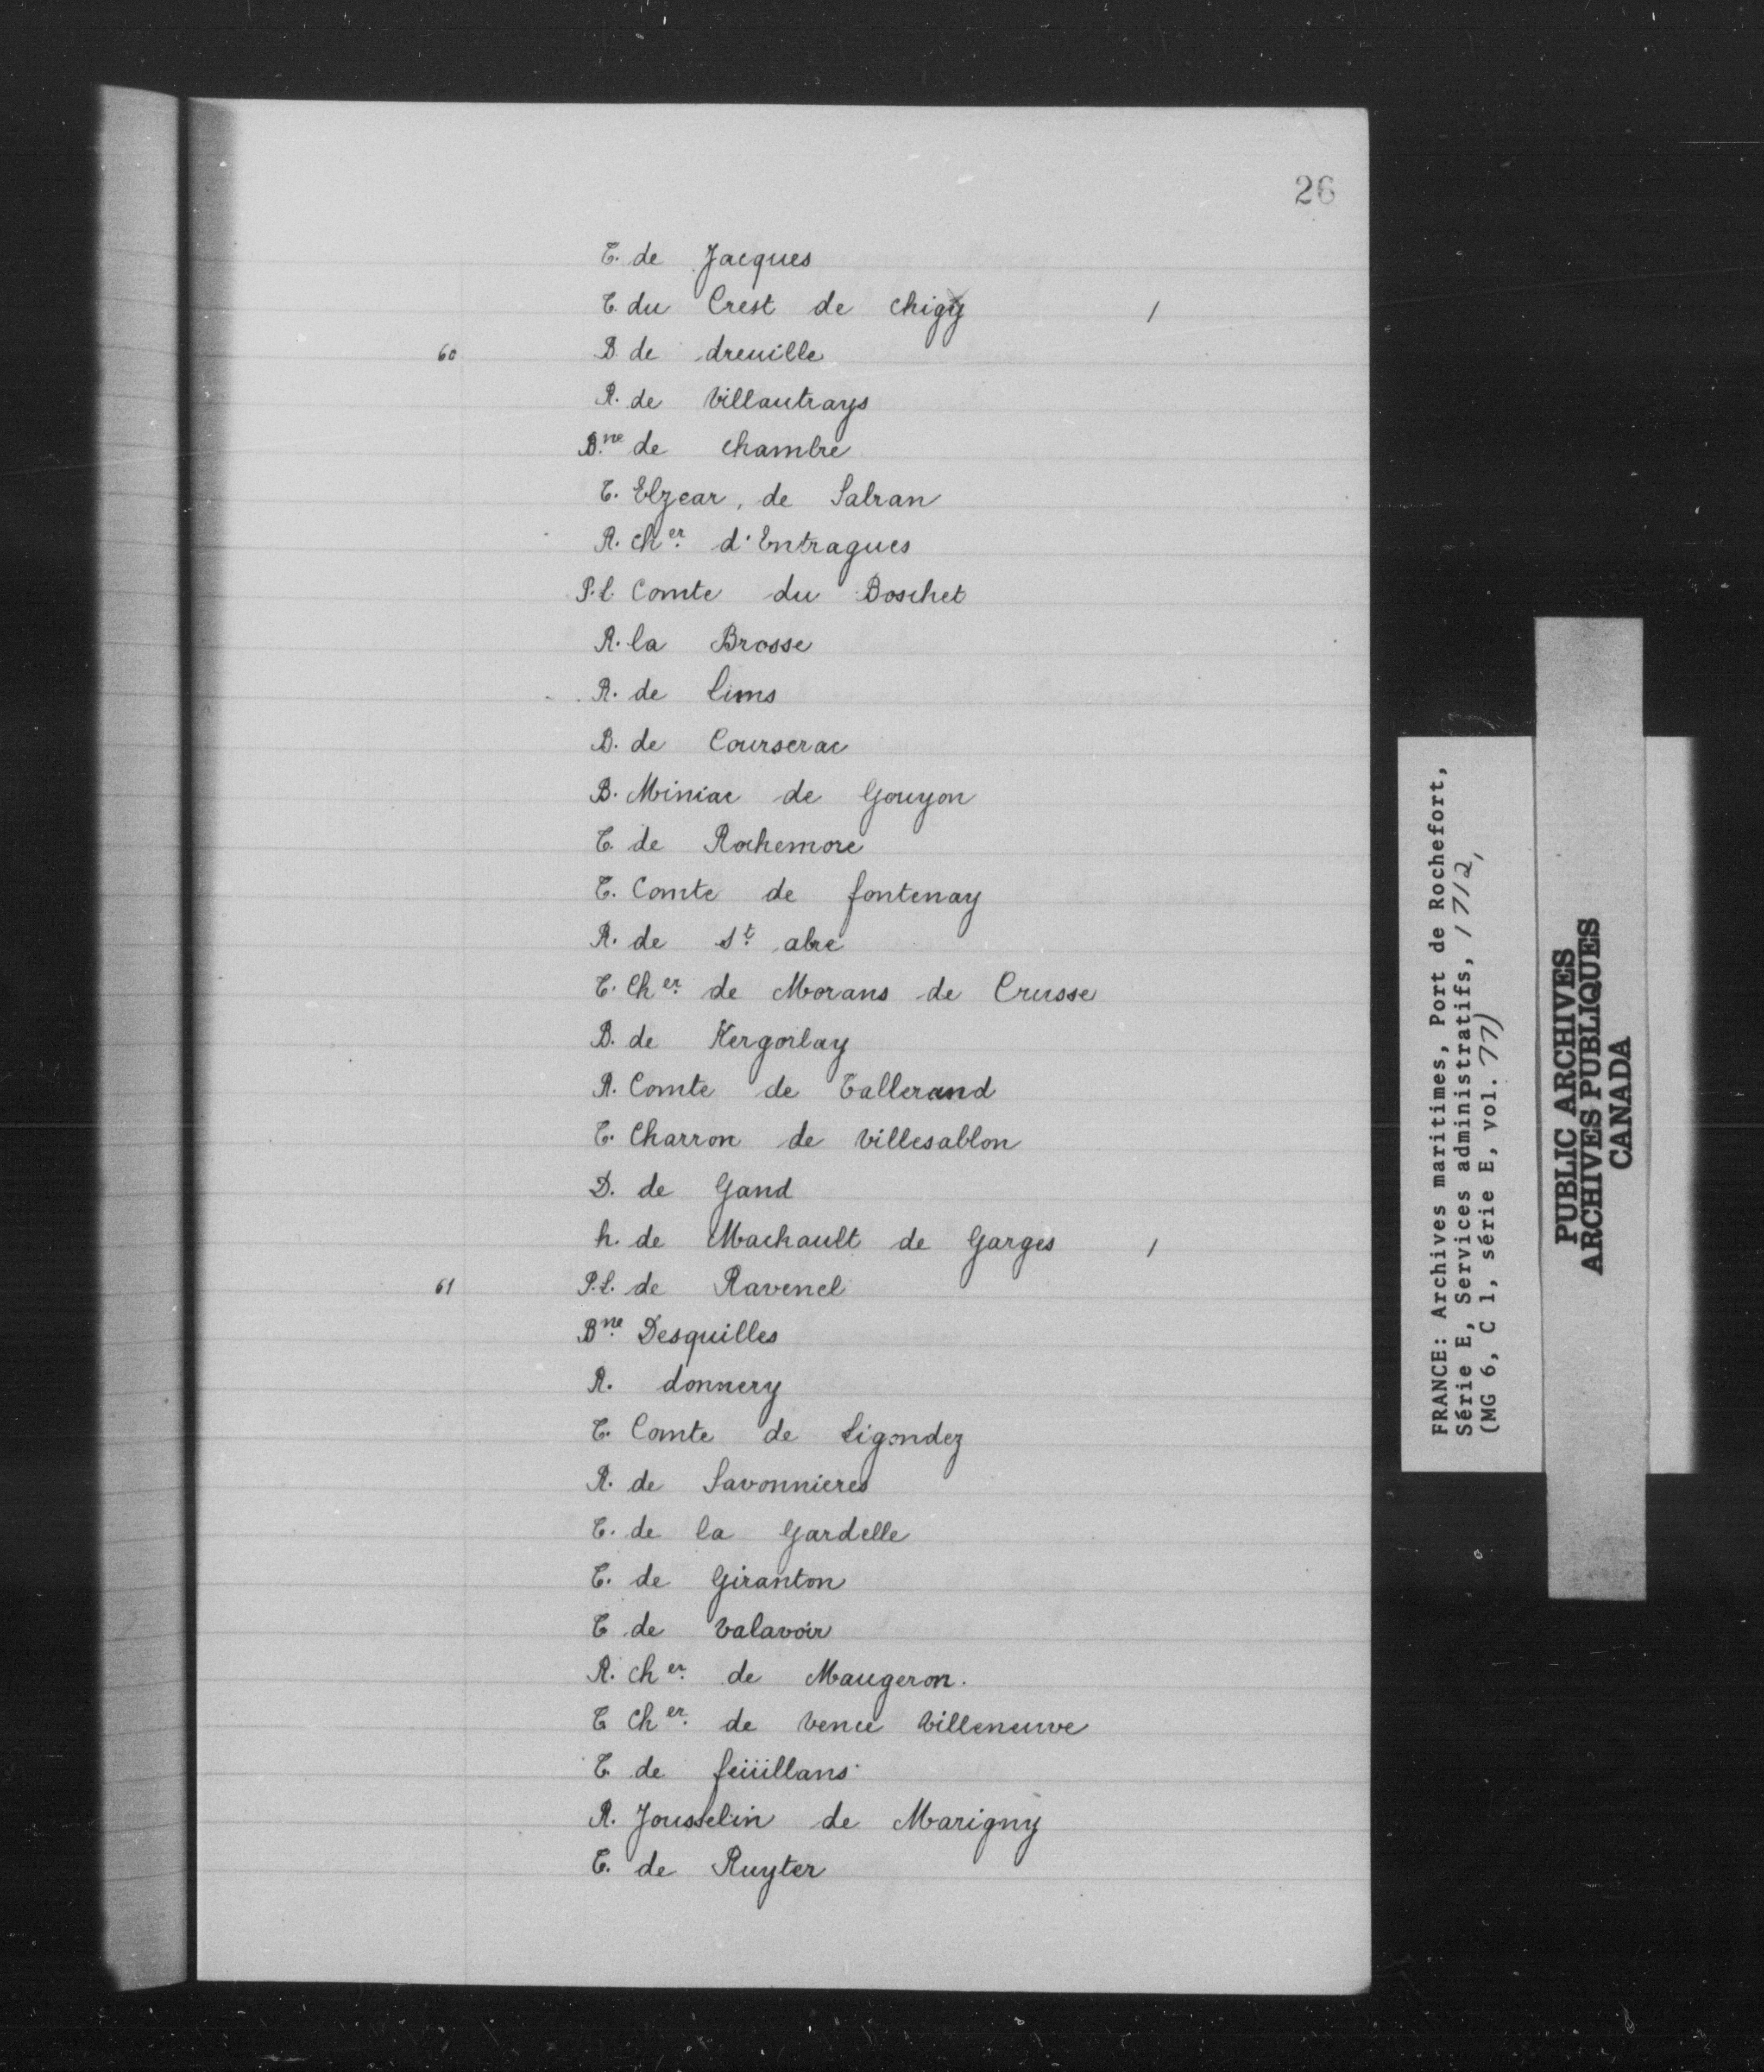 26
T. de Jacques
T. du Crest de chigy 1
60 B. de dreuille
R. de Villautrays
B.ne de chambre
T. Elzear, de Sabran
R. Ch.er d'Entragues
P.l. Comte du Boschet
R. la Brosse
R. de Lims
B. de Courserac
B. Miniac de Gouyon
T. de Rochemore
T. Comte de fontenay
R. de St. abre
T. Ch.er de Morans de Crusse
B. de Kergorlay
R. Comte de Tallerand
T. Charron de Villesablon
D. de Gand
h. de Machault de Garges 1
61 P.L. de Ravenel
B.ne Desquilles
R. donnery
T. Comte de Ligondez
R. de Savonnieres
T. de la Gardelle
T. de Giranton
T de Valavoir
R. Ch.er de Maugeron.
T Ch.er de Vence Villeneuve
T. de feüillans
R. Jousselin de Marigny
T. de Ruyter
FRANCE: Archives maritimes, Port de Rochefort,
Série E, Services administratifs, 1712,
(MG 6, C 1, série E, vol. 77)
PUBLIC ARCHIVES
ARCHIVES PUBLIQUES
CANADA